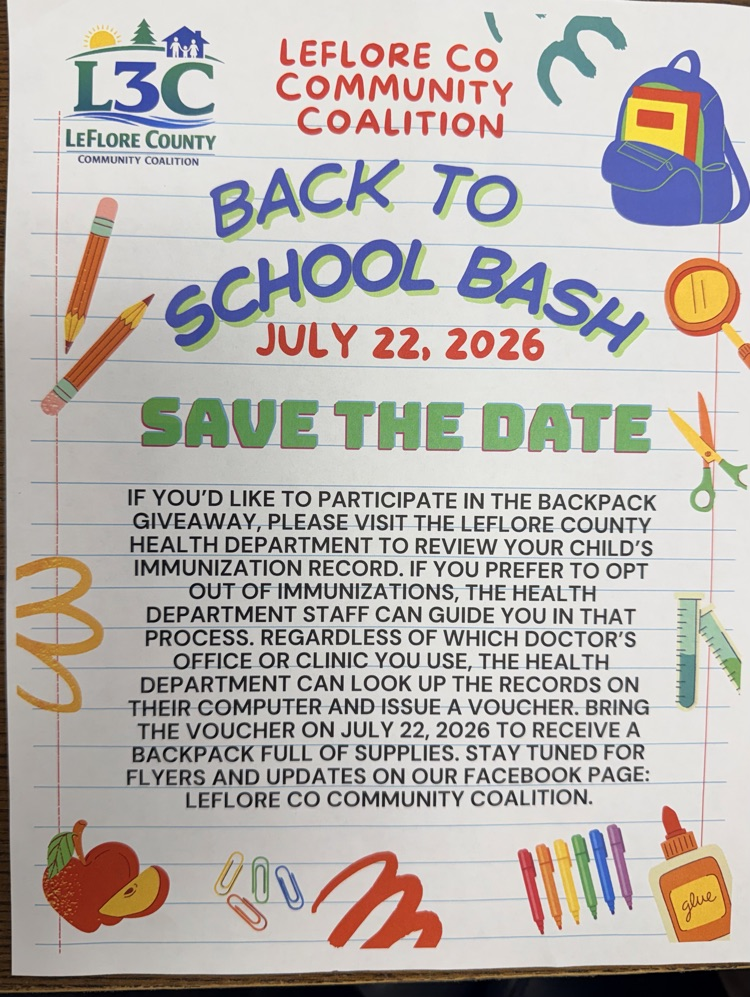 L3C
LEFLORE COUNTY
COMMUNITY COALITION
LEFLORE CO
COMMUNITY
COALITION
BACK TO
SCHOOL BASH
JULY 22, 2026
SAVE THE DATE
IF YOU'D LIKE TO PARTICIPATE IN THE BACKPACK
GIVEAWAY, PLEASE VISIT THE LEFLORE COUNTY
HEALTH DEPARTMENT TO REVIEW YOUR CHILD'S
IMMUNIZATION RECORD. IF YOU PREFER TO OPT
OUT OF IMMUNIZATIONS, THE HEALTH
DEPARTMENT STAFF CAN GUIDE YOU IN THAT
PROCESS. REGARDLESS OF WHICH DOCTOR'S
OFFICE OR CLINIC YOU USE, THE HEALTH
DEPARTMENT CAN LOOK UP THE RECORDS ON
THEIR COMPUTER AND ISSUE A VOUCHER. BRING
THE VOUCHER ON JULY 22, 2026 TO RECEIVE A
BACKPACK FULL OF SUPPLIES. STAY TUNED FOR
FLYERS AND UPDATES ON OUR FACEBOOK PAGE:
LEFLORE CO COMMUNITY COALITION.
glue